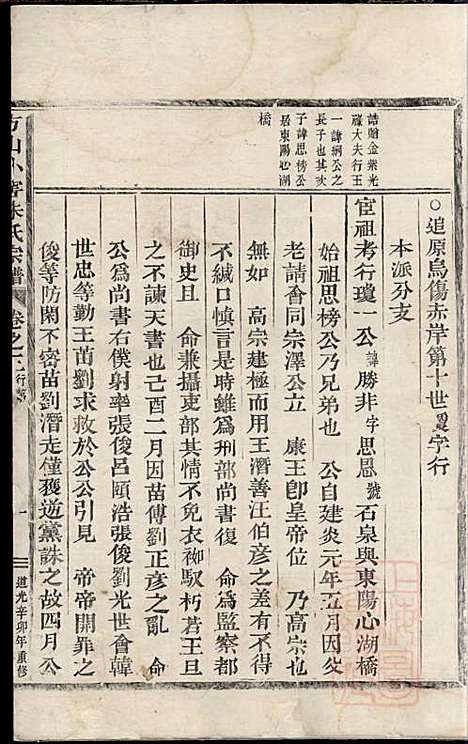 ○追原烏傷赤岸第十世
字行
本派分支
宦祖考行瓊一公諱勝非字思恩號石泉與東陽心湖橋
始祖思榜公乃兄弟也 公自建炎元年五月因
老請會同宗澤公上立 康王卽皇帝位 乃高宗也
無如 高宗建極而用王潛善汪伯彥之差有不得
不緘口慎言是時雖爲刑部尚書復 命爲監察都
御史且 命兼攝吏部其情不免衣袽馭朽若王旦
之不諫天書也己酉二月因苗傅劉正彥之亂 命
公爲尚書右僕射率張俊呂頤浩張俊劉光世會韓
世忠等勤王苗劉求救於公公引見 帝帝開罪之
俊等防閑不密苗劉潛走僅獲逆黨誅之故四月公
誥贈金紫光
祿大夫行王
一諱綱公之
長子也其次
子諱思榜公
居東陽心湖
橋
方山小宅朱氏宗譜
卷之
行第
一
道光辛卯年重修